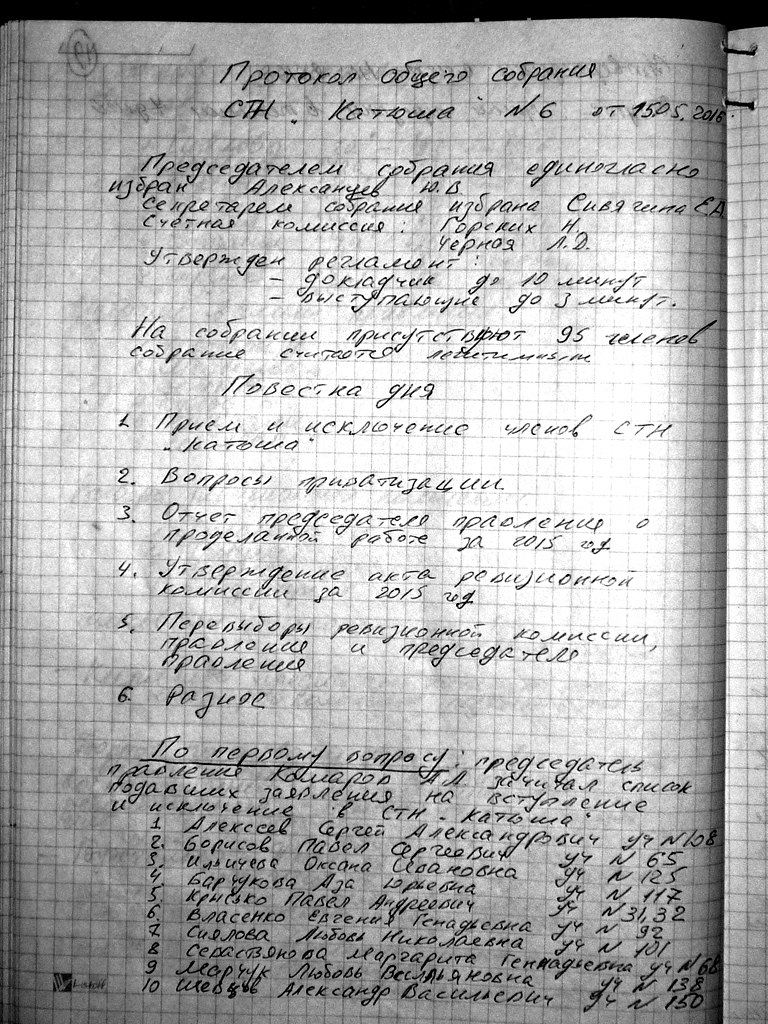 Протокол общего собрания
СТН "Катюша" N 6 от 15.05.2016.
Председателем собрания единогласно
избран Александров Ю.В
Секретарем собрания избрана Сивягина ЕА
Счетная комиссия: Горских Н.
Черная Л.Д.
Утвержден регламент:
- докладчик до 10 минут
- выступающие до 3 минут.
На собрании присутствуют 95 членов
собрание считается
Повестка дня
1. Прием и исключение членов СТН
"Катюша"
2. Вопросы приватизации
3. Отчет председателя правления о
проделанной работе за 2015 год
4. Утверждение акта ревизионной
комиссии за 2015 год
5. Перевыборы ревизионной комиссии,
правления и председателя
правления
6. Разное
По первому вопросу: председатель
правления Комаров А.Л. зачитал список
подавших заявления на вступление
и исключение в СТН "Катюша"
1. Алексеев Сергей Александрович уч N 108
2. Борисов Павел Сергеевич уч N 65
3. Ильичева Оксана Ивановна уч N 125
4 Барчукова Аза Юрьевна уч N 117
5. Павел Андреевич уч N 31,32
6. Власенко Евгения Генадьевна уч N 92
7 Сиялова Любовь Николаевна уч N 101
8 Маргарита Геннадьевна уч N 68
9 Марчук Любовь уч N 138
10 Шевцов Александр Васильевич уч N 150
Listoff